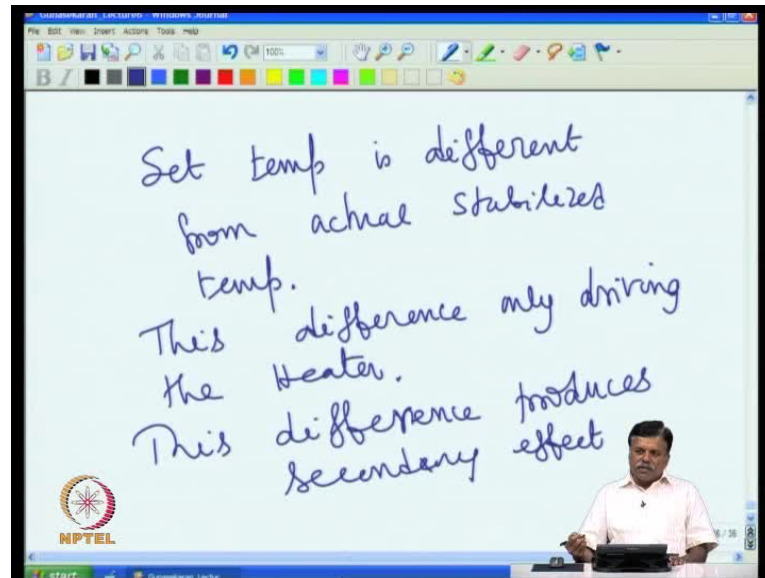 Gunasekaran_Lecture6 - Windows Journal
File Edit View Insert Actions Tools Help
100%
B I
Set temp is different
from actual stabilized
temp.
This difference only driving
the Heater.
This difference produces
secondary effect
NPTEL
/ 36
start
Gunasekaran_Lectur...